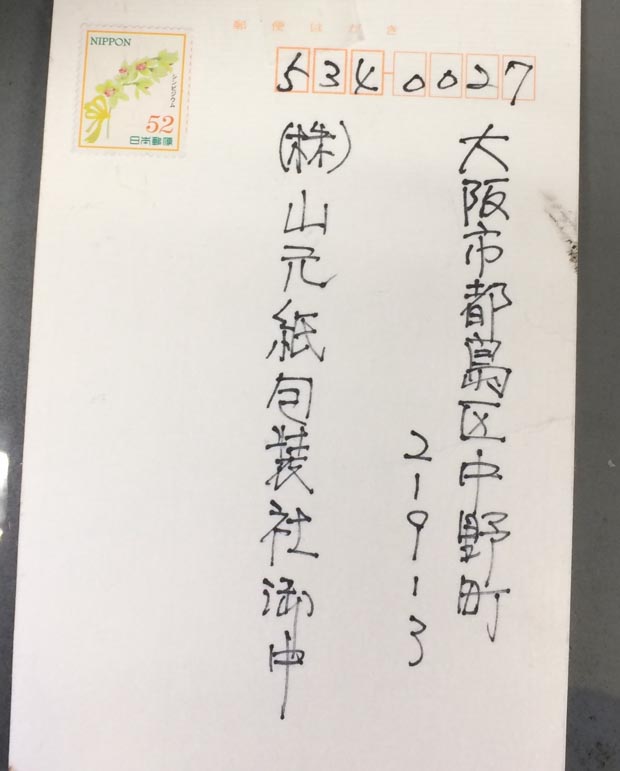 郵便はがき
NIPPON
シンビジウム
52
日本郵便
534-0027
大阪市都島区中野町
2-9-13
(株)山元紙包装社御中